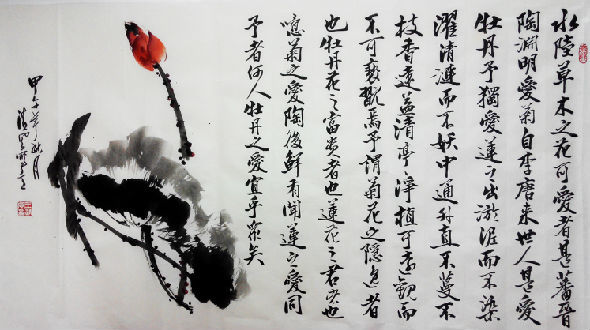 水陸草木之花可愛者甚蕃晉
陶淵明愛菊自李唐来世人甚愛
牡丹予獨愛蓮之出淤泥而不染
濯清漣而不妖中通外直不蔓不
枝香遠益清亭淨植可遠觀而
不可褻翫焉予謂菊花之隱逸者
也牡丹花之富貴者也蓮花之君子也
噫菊之愛陶後鮮有聞蓮之愛同
予者何人牡丹之愛宜乎眾矣
甲午年秋月